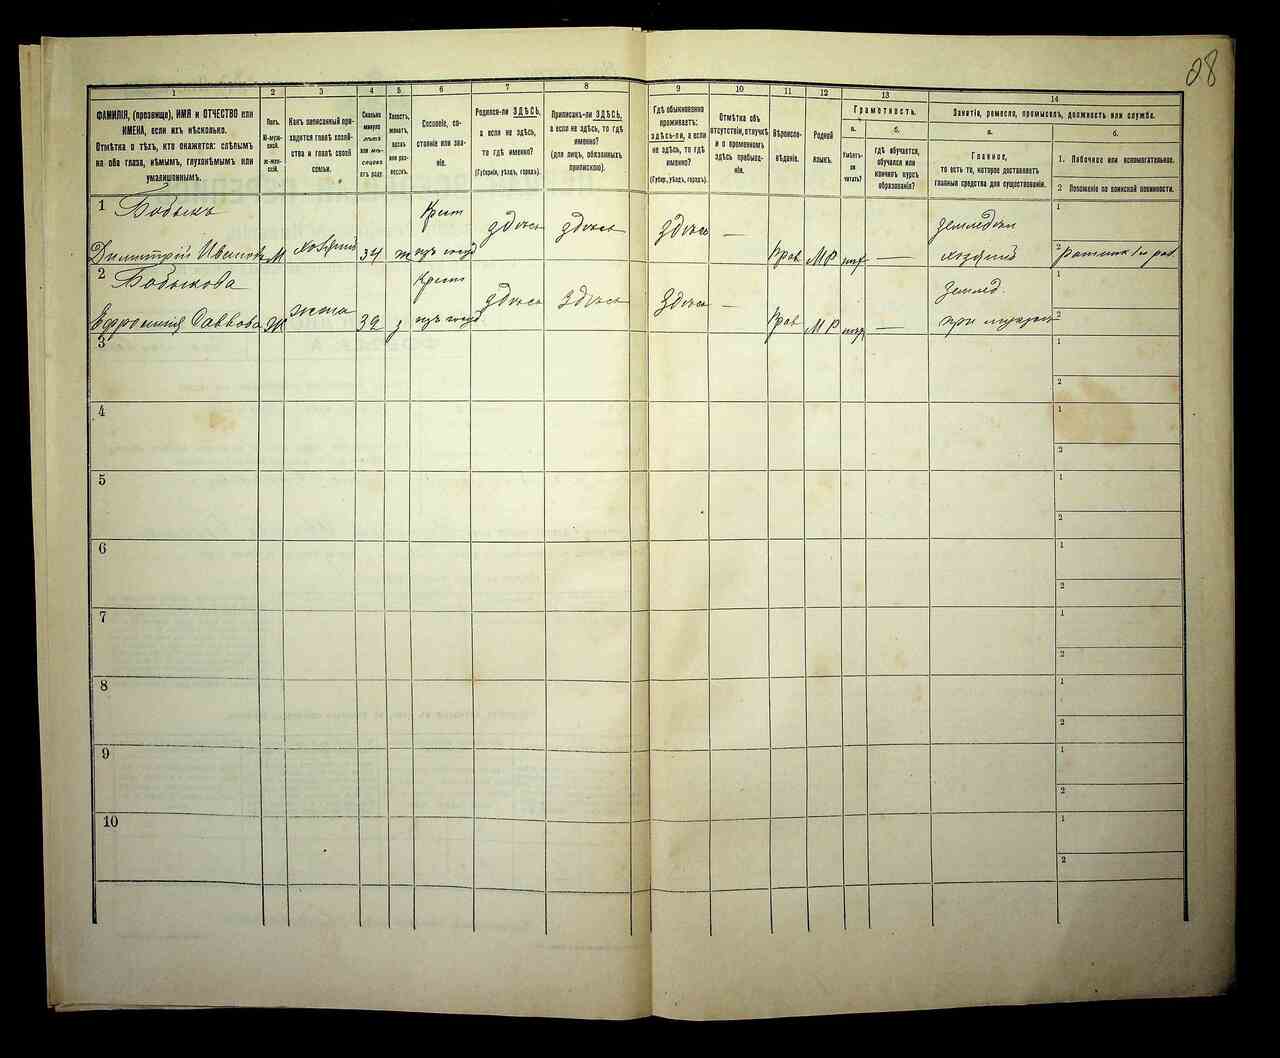 28
1
2
3
4
5
6
7
8
9
10
11
12
13
14
ФАМИЛІЯ, (прозвище), ИМЯ и ОТЧЕСТВО или
ИМЕНА, если ихъ нѣсколько.
Отмѣтка о тѣхъ, кто окажется: слѣпымъ
на оба глаза, нѣмымъ, глухонѣмымъ или
умалишеннымъ.
Полъ.
М-муж-
ской.
Ж-жен-
скій.
Какъ записанный при-
ходится главѣ хозяй-
ства и главѣ своей
семьи.
Сколько
минуло
лѣтъ
или мѣ-
сяцевъ
отъ роду.
Холостъ,
женатъ,
вдовъ
или раз-
веденъ.
Сословіе, со-
стояніе или зва-
ніе.
Родился-ли ЗДѢСЬ,
а если не здѣсь,
то гдѣ именно?
(Губернія, уѣздъ, городъ).
Приписанъ-ли ЗДѢСЬ,
а если не здѣсь, то гдѣ
именно?
(для лицъ, обязанныхъ
припискою).
Гдѣ обыкновенно
проживаетъ:
здѣсь-ли, а если
не здѣсь, то гдѣ
именно?
(Губер., уѣздъ, городъ).
Отмѣтка объ
отсутствіи, отлучкѣ
и о временномъ
здѣсь пребыва-
ніи.
Вѣроиспо-
вѣданіе.
Родной
языкъ.
Грамотность.
а.
Умѣетъ-
ли
читать?
б.
Гдѣ обучается,
обучался или
кончилъ курсъ
образованія?
Занятіе, ремесло, промыселъ, должность или служба.
а.
Главное,
то есть то, которое доставляетъ
главныя средства для существованія.
б.
1. Побочное или вспомогательное.
2 Положеніе по воинской повинности.
1 Бобыкъ
Димитрій Ивановъ М хозяинъ 34 ж Крест изъ госуд здесь здесь здесь — Прав МР нѣт — земледѣл хозяинъ
1
2
2 Бобыкова
Ефросинія Саввова Ж жена 32 з Крест изъ госуд здесь здесь здесь — Прав МР нѣт — землед. при мужѣ
1
2
3
1
2
4
1
2
5
1
2
6
1
2
7
1
2
8
1
2
9
1
2
10
1
2